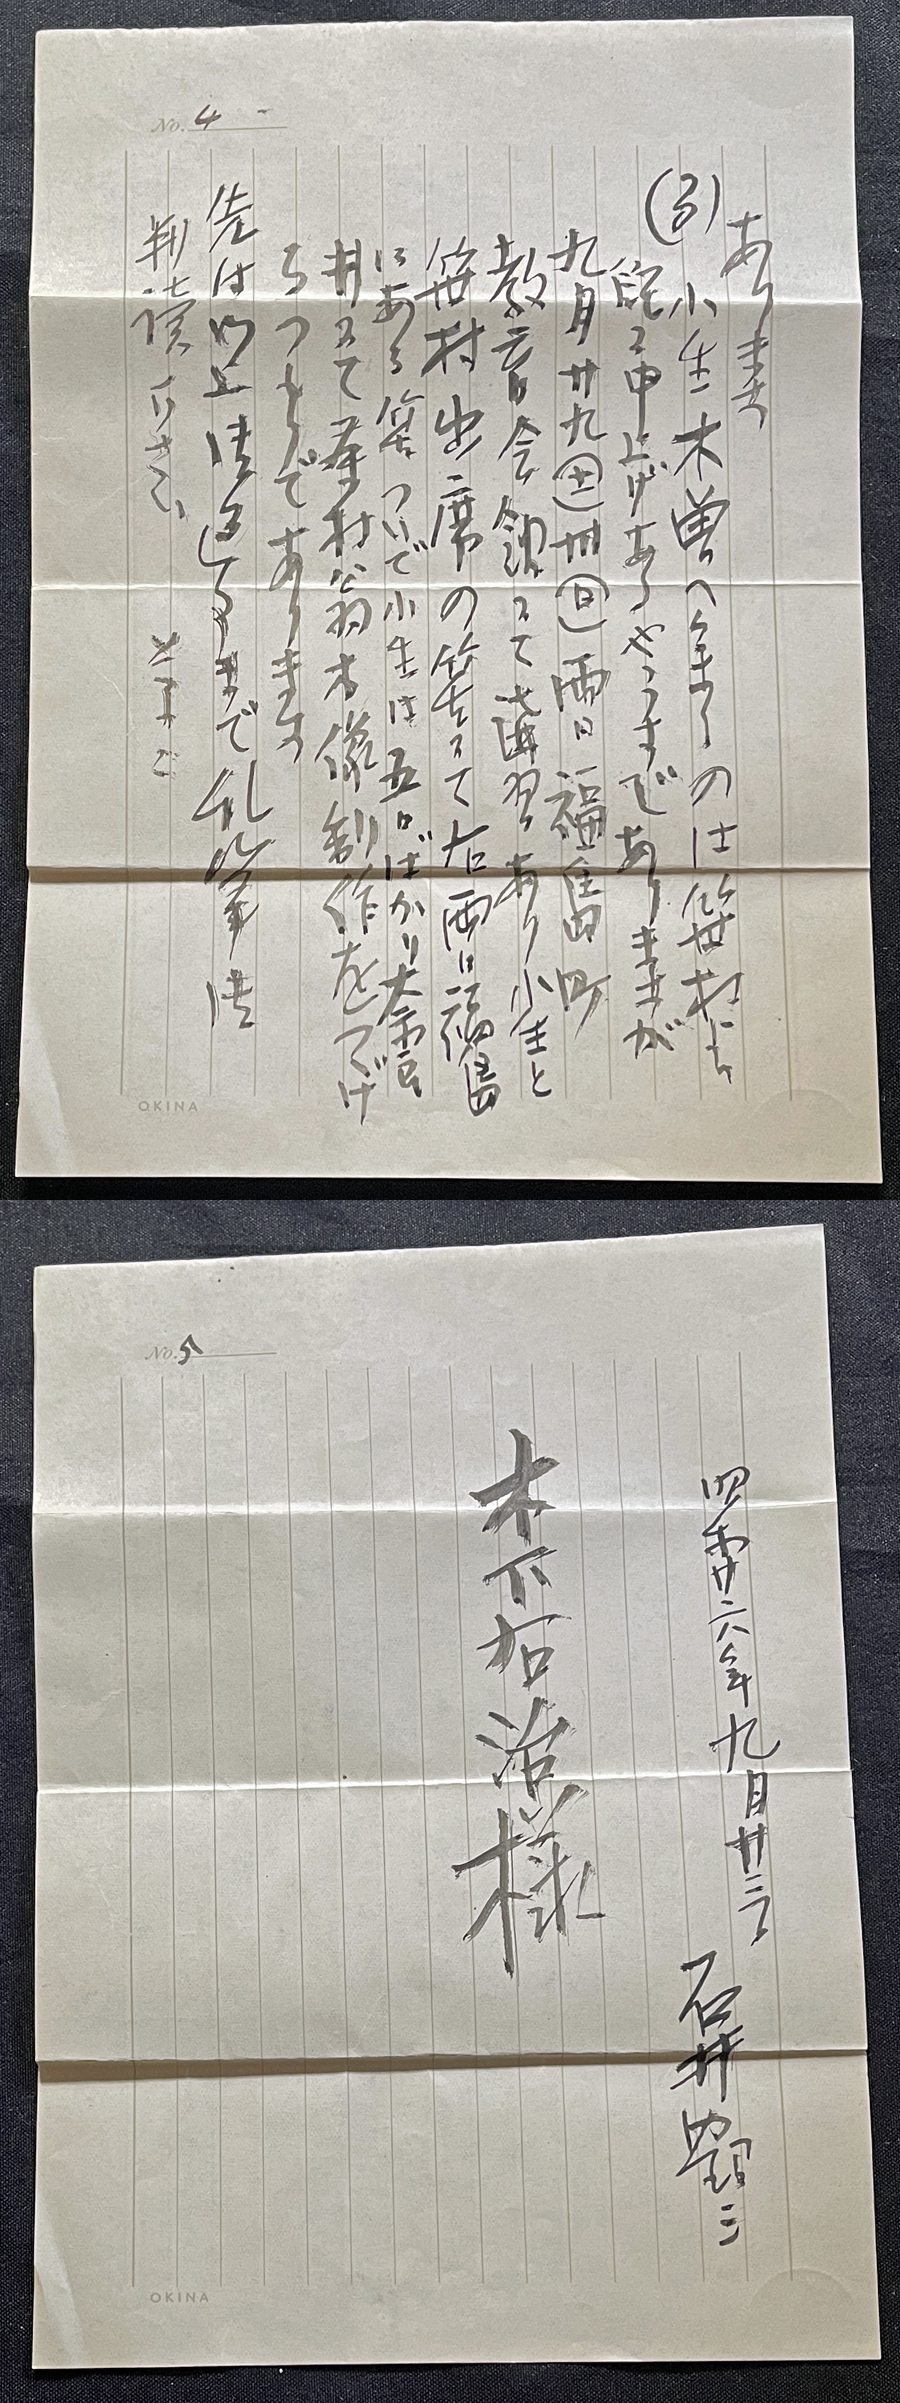 No. 4
あります
(3)小生木曽へ参るのは笹村にも
既に申上げあるやうすでありますが
九月廿九(土)卅(日)両日福島町
教育会館にて講習あり小生と
笹村出席の筈にて右両日福島
にある筈ついで小生は五日ばかり
井にて藤村翁木像制作をつづけ
るつもりであります
先は御返事まで乱筆
判読下さい
OKINA
No. 5
廿六年九月廿三
石井鶴三
木下右治様
OKINA